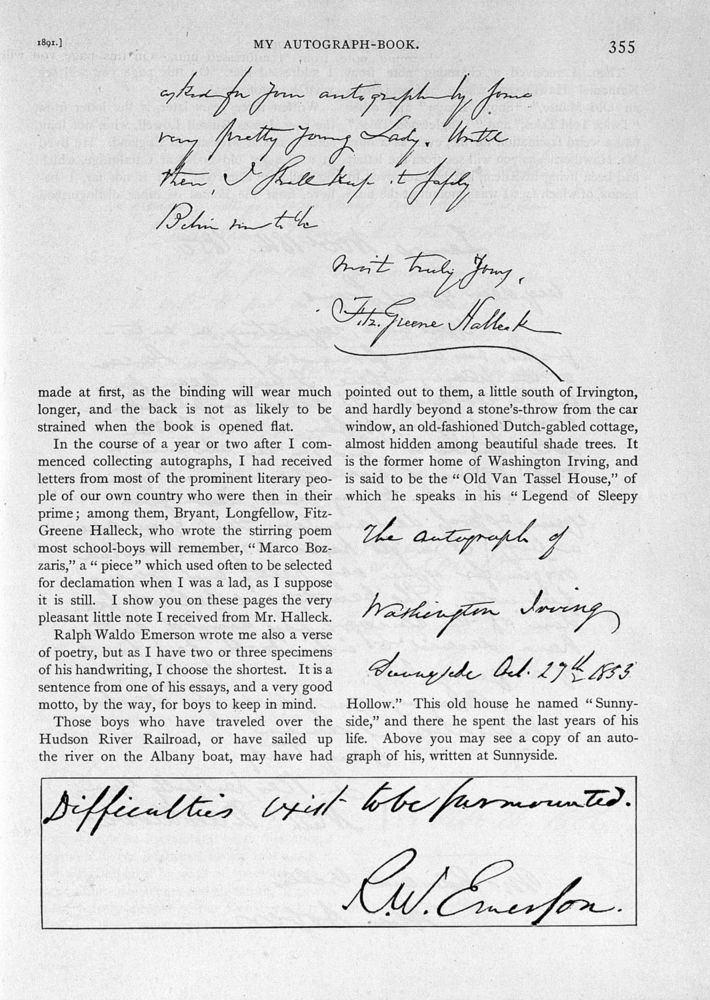 1891.] MY AUTOGRAPH-BOOK. 355
asked for your autograph by some
very pretty Young Lady. Until
then, I shall keep it safely
Believe me to be
most truly Yours,
Fitz-Greene Halleck
made at first, as the binding will wear much
longer, and the back is not as likely to be
strained when the book is opened flat.
In the course of a year or two after I com-
menced collecting autographs, I had received
letters from most of the prominent literary peo-
ple of our own country who were then in their
prime; among them, Bryant, Longfellow, Fitz-
Greene Halleck, who wrote the stirring poem
most school-boys will remember, “Marco Boz-
zaris,” a “piece” which used often to be selected
for declamation when I was a lad, as I suppose
it is still. I show you on these pages the very
pleasant little note I received from Mr. Halleck.
Ralph Waldo Emerson wrote me also a verse
of poetry, but as I have two or three specimens
of his handwriting, I choose the shortest. It is a
sentence from one of his essays, and a very good
motto, by the way, for boys to keep in mind.
Those boys who have traveled over the
Hudson River Railroad, or have sailed up
the river on the Albany boat, may have had
pointed out to them, a little south of Irvington,
and hardly beyond a stone’s-throw from the car
window, an old-fashioned Dutch-gabled cottage,
almost hidden among beautiful shade trees. It
is the former home of Washington Irving, and
is said to be the “Old Van Tassel House,” of
which he speaks in his “Legend of Sleepy
The autograph of
Washington Irving
Sunnyside Oct. 27th 1853
Hollow.” This old house he named “Sunny-
side,” and there he spent the last years of his
life. Above you may see a copy of an auto-
graph of his, written at Sunnyside.
Difficulties exist to be surmounted.
R. W. Emerson.